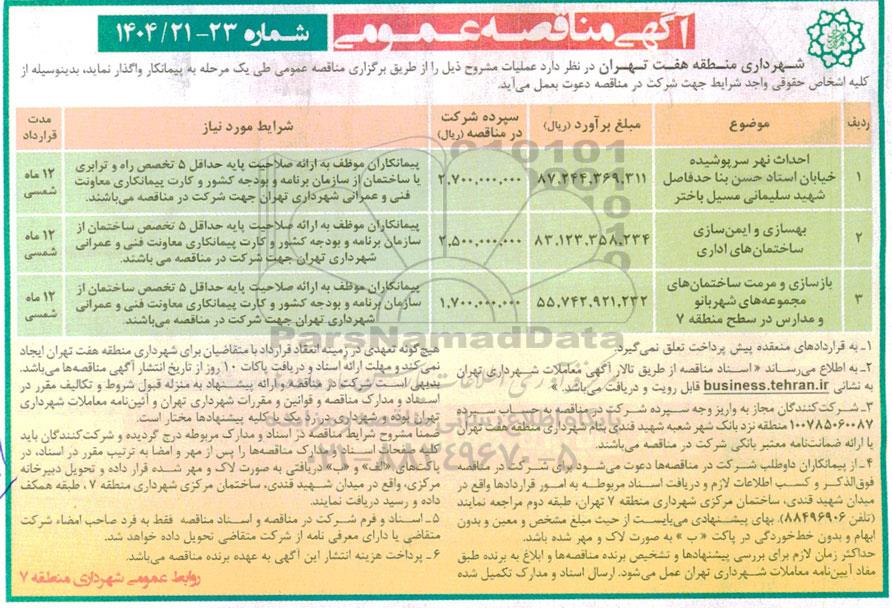 آگهی مناقصه عمومی
شماره ۲۳-۱۴۰۴/۲۱
شهرداری منطقه هفت تهران در نظر دارد عملیات مشروح ذیل را از طریق برگزاری مناقصه عمومی طی یک مرحله به پیمانکار واگذار نماید، بدینوسیله از
کلیه اشخاص حقوقی واجد شرایط جهت شرکت در مناقصه دعوت بعمل می‌آید.
ردیف موضوع مبلغ برآورد (ریال) سپرده شرکت در مناقصه (ریال) شرایط مورد نیاز مدت قرارداد
۱
احداث نهر سرپوشیده
خیابان استاد حسن بنا حدفاصل
شهید سلیمانی مسیل باختر
۸۷.۲۴۴.۳۶۹.۳۱۱
۲.۷۰۰.۰۰۰.۰۰۰
پیمانکاران موظف به ارائه صلاحیت پایه حداقل ۵ تخصص راه و ترابری
یا ساختمان از سازمان برنامه و بودجه کشور و کارت پیمانکاری معاونت
فنی و عمرانی شهرداری تهران جهت شرکت در مناقصه می‌باشند.
۱۲ ماه
شمسی
۲
بهسازی و ایمن‌سازی
ساختمان‌های اداری
۸۳.۱۲۳.۳۵۸.۲۳۴
۲.۵۰۰.۰۰۰.۰۰۰
پیمانکاران موظف به ارائه صلاحیت پایه حداقل ۵ تخصص ساختمان از
سازمان برنامه و بودجه کشور و کارت پیمانکاری معاونت فنی و عمرانی
شهرداری تهران جهت شرکت در مناقصه می باشند.
۱۲ ماه
شمسی
۳
بازسازی و مرمت ساختمان‌های
مجموعه‌های شهربانو
و مدارس در سطح منطقه ۷
۵۵.۷۴۲.۹۲۱.۲۳۲
۱.۷۰۰.۰۰۰.۰۰۰
پیمانکاران موظف به ارائه صلاحیت پایه حداقل ۵ تخصص ساختمان از
سازمان برنامه و بودجه کشور و کارت پیمانکاری معاونت فنی و عمرانی
شهرداری تهران جهت شرکت در مناقصه می‌باشند.
۱۲ ماه
شمسی
۱- به قراردادهای منعقده پیش پرداخت تعلق نمی‌گیرد.
۲- به اطلاع می‌رساند « اسناد مناقصه از طریق تالار آگهی معاملات شهرداری تهران
به نشانی business.tehran.ir قابل رویت و دریافت می‌باشد. »
۳- شرکت‌کنندگان مجاز به واریز وجه سپرده شرکت در مناقصه به حساب سپرده
۱۰۰۷۸۵۰۶۰۰۸۷ منطقه نزد بانک شهر شعبه شهید قندی بنام شهرداری منطقه هفت تهران
یا ارائه ضمانت‌نامه معتبر بانکی شرکت در مناقصه می‌باشند.
۴- از پیمانکاران داوطلب شرکت در مناقصه‌ها دعوت می‌شود برای شرکت در مناقصه
فوق‌الذکر و کسب اطلاعات لازم و دریافت اسناد مربوطه به امور قراردادها واقع در
میدان شهید قندی، ساختمان مرکزی شهرداری منطقه ۷ تهران، طبقه دوم مراجعه نمایند
(تلفن ۸۸۴۹۶۹۰۶). بهای پیشنهادی می‌بایست از حیث مبلغ مشخص و معین و بدون
ابهام و بدون خط‌خوردگی در پاکت « ب » به صورت لاک و مهر شده باشد.
حداکثر زمان لازم برای بررسی پیشنهادها و تشخیص برنده مناقصه‌ها و ابلاغ به برنده طبق
مفاد آیین‌نامه معاملات شهرداری تهران عمل می‌شود. ارسال اسناد و مدارک تکمیل شده
هیچ‌گونه تعهدی در زمینه انعقاد قرارداد با متقاضیان برای شهرداری منطقه هفت تهران ایجاد
نمی‌کند و مهلت ارائه اسناد و دریافت پاکات ۱۰ روز از تاریخ انتشار آگهی مناقصه‌ها می‌باشد.
بدیهی است شرکت در مناقصه و ارائه پیشنهاد به منزله قبول شروط و تکالیف مقرر در
اسناد و مدارک مناقصه و قوانین و مقررات شهرداری تهران و آئین‌نامه معاملات شهرداری
تهران بوده و شهرداری در رد یک یا کلیه پیشنهادها مختار است.
ضمنا مشروح شرایط مناقصه در اسناد و مدارک مربوطه درج گردیده و شرکت‌کنندگان باید
کلیه صفحات اسناد و مدارک مناقصه‌ها را پس از مهر و امضا به ترتیب مقرر در اسناد، در
پاکت‌های «الف» و «ب» دریافتی به صورت لاک و مهر شده قرار داده و تحویل دبیرخانه
مرکزی، واقع در میدان شهید قندی، ساختمان مرکزی شهرداری منطقه ۷ ، طبقه همکف
داده و رسید دریافت نمایند.
۵- اسناد و فرم شرکت در مناقصه و اسناد مناقصه فقط به فرد صاحب امضاء شرکت
متقاضی یا دارای معرفی نامه از شرکت متقاضی تحویل داده خواهد شد.
۶- پرداخت هزینه انتشار این آگهی به عهده برنده مناقصه می‌باشد.
روابط عمومی شهرداری منطقه ۷
ParsNamadData
۰۲۱-۸۸۳۴۹۶۷۰-۵